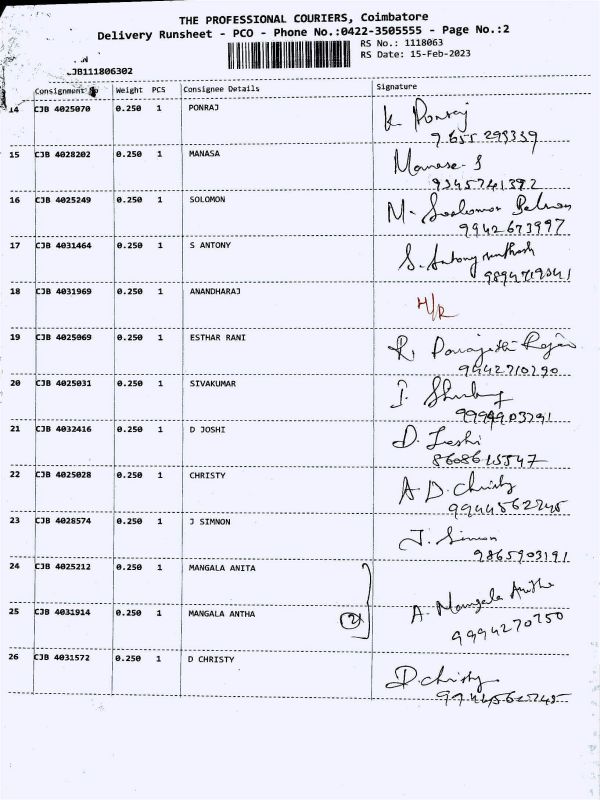 THE PROFESSIONAL COURIERS, Coimbatore
Delivery Runsheet - PCO - Phone No.:0422-3505555 - Page No.:2
RS No.: 1118063
RS Date: 15-Feb-2023
JB111806302
Consignment No Weight PCS Consignee Details Signature
14 CJB 4025070 0.250 1 PONRAJ K Ponraj
9655 299339
15 CJB 4028202 0.250 1 MANASA Manasa S
9345741392
16 CJB 4025249 0.250 1 SOLOMON M. Soolomon
9942673997
17 CJB 4031464 0.250 1 S ANTONY S. Antony
9894719341
18 CJB 4031969 0.250 1 ANANDHARAJ H/R
19 CJB 4025069 0.250 1 ESTHAR RANI R.
9942710290
20 CJB 4025031 0.250 1 SIVAKUMAR
21 CJB 4032416 0.250 1 D JOSHI D. Joshi
8608615547
22 CJB 4025028 0.250 1 CHRISTY A D. Christy
9944562745
23 CJB 4028574 0.250 1 J SIMNON J. Simon
9865903191
24 CJB 4025212 0.250 1 MANGALA ANITA
A. Mangala Anitha
25 CJB 4031914 0.250 1 MANGALA ANTHA (2)
9994270750
26 CJB 4031572 0.250 1 D CHRISTY D. christy